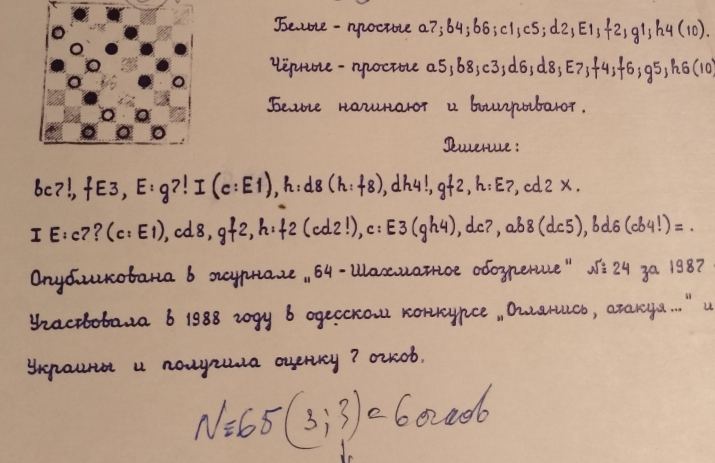 Белые - простые а7; b4; b6; c1; c5; d2; E1; f2; g1; h4 (10).
Чёрные - простые а5; b8; c3; d6; d8; E7; f4; f6; g5; h6 (10)
Белые начинают и выигрывают.
Решение:
bc7!, fE3, E:g7! I (c:E1), h:d8 (h:f8), dh4!, gf2, h:E7, cd2 x.
I E:c7?? (c:E1), cd8, gf2, h:f2 (cd2!), c:E3 (gh4), dc7, ab8 (dc5), bd6 (cb4!) = .
Опубликована в журнале „64 - Шахматное обозрение" № 24 за 1987
Участвовала в 1988 году в одесском конкурсе „Оглянись, атакуя..." и
Украины и получила оценку 7 очков.
№65 (3; 3) = 6 очков